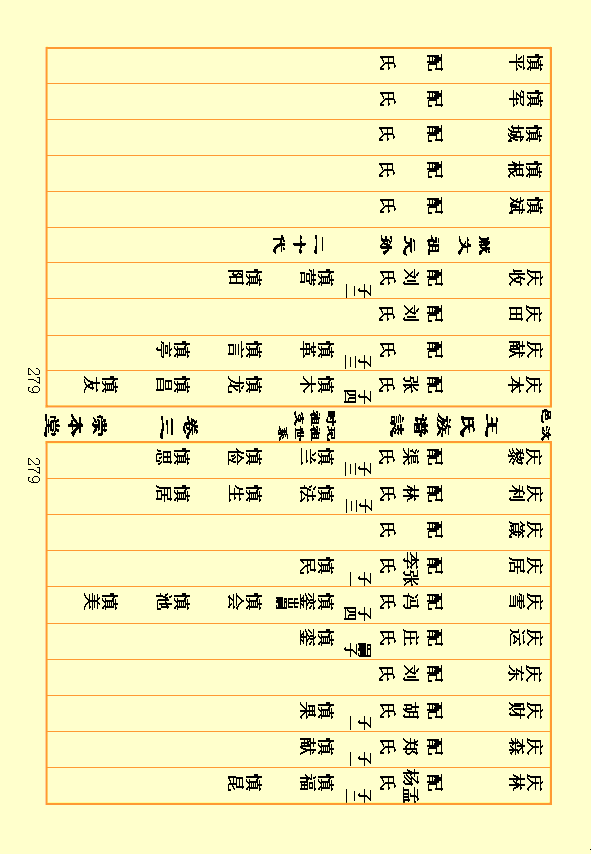 庆林 配孟杨氏 子二 慎福 慎昆
庆森 配郑氏 子一 慎献
庆财 配胡氏 子一 慎果
庆东 配刘氏
庆运 配庄氏 嗣子 慎銮
庆雪 配冯氏 子四 慎銮出嗣 慎会 慎池 慎美
庆居 配张李氏 子一 慎民
庆 配 氏
庆利 配林氏 子三 慎法 慎生 慎居
庆黎 配渠氏 子三 慎兰 慎俭 慎思
279
汶邑 王氏族谱誌 玘祖世系 财祖支 卷三 崇本堂
279
庆本 配张氏 子四 慎木 慎龙 慎昌 慎友
庆献 配 氏 子三 慎革 慎言 慎亭
庆田 配刘氏
庆收 配刘氏 子二 慎营 慎阳
献文祖元孙 二十代
慎斌 配 氏
慎根 配 氏
慎城 配 氏
慎军 配 氏
慎平 配 氏